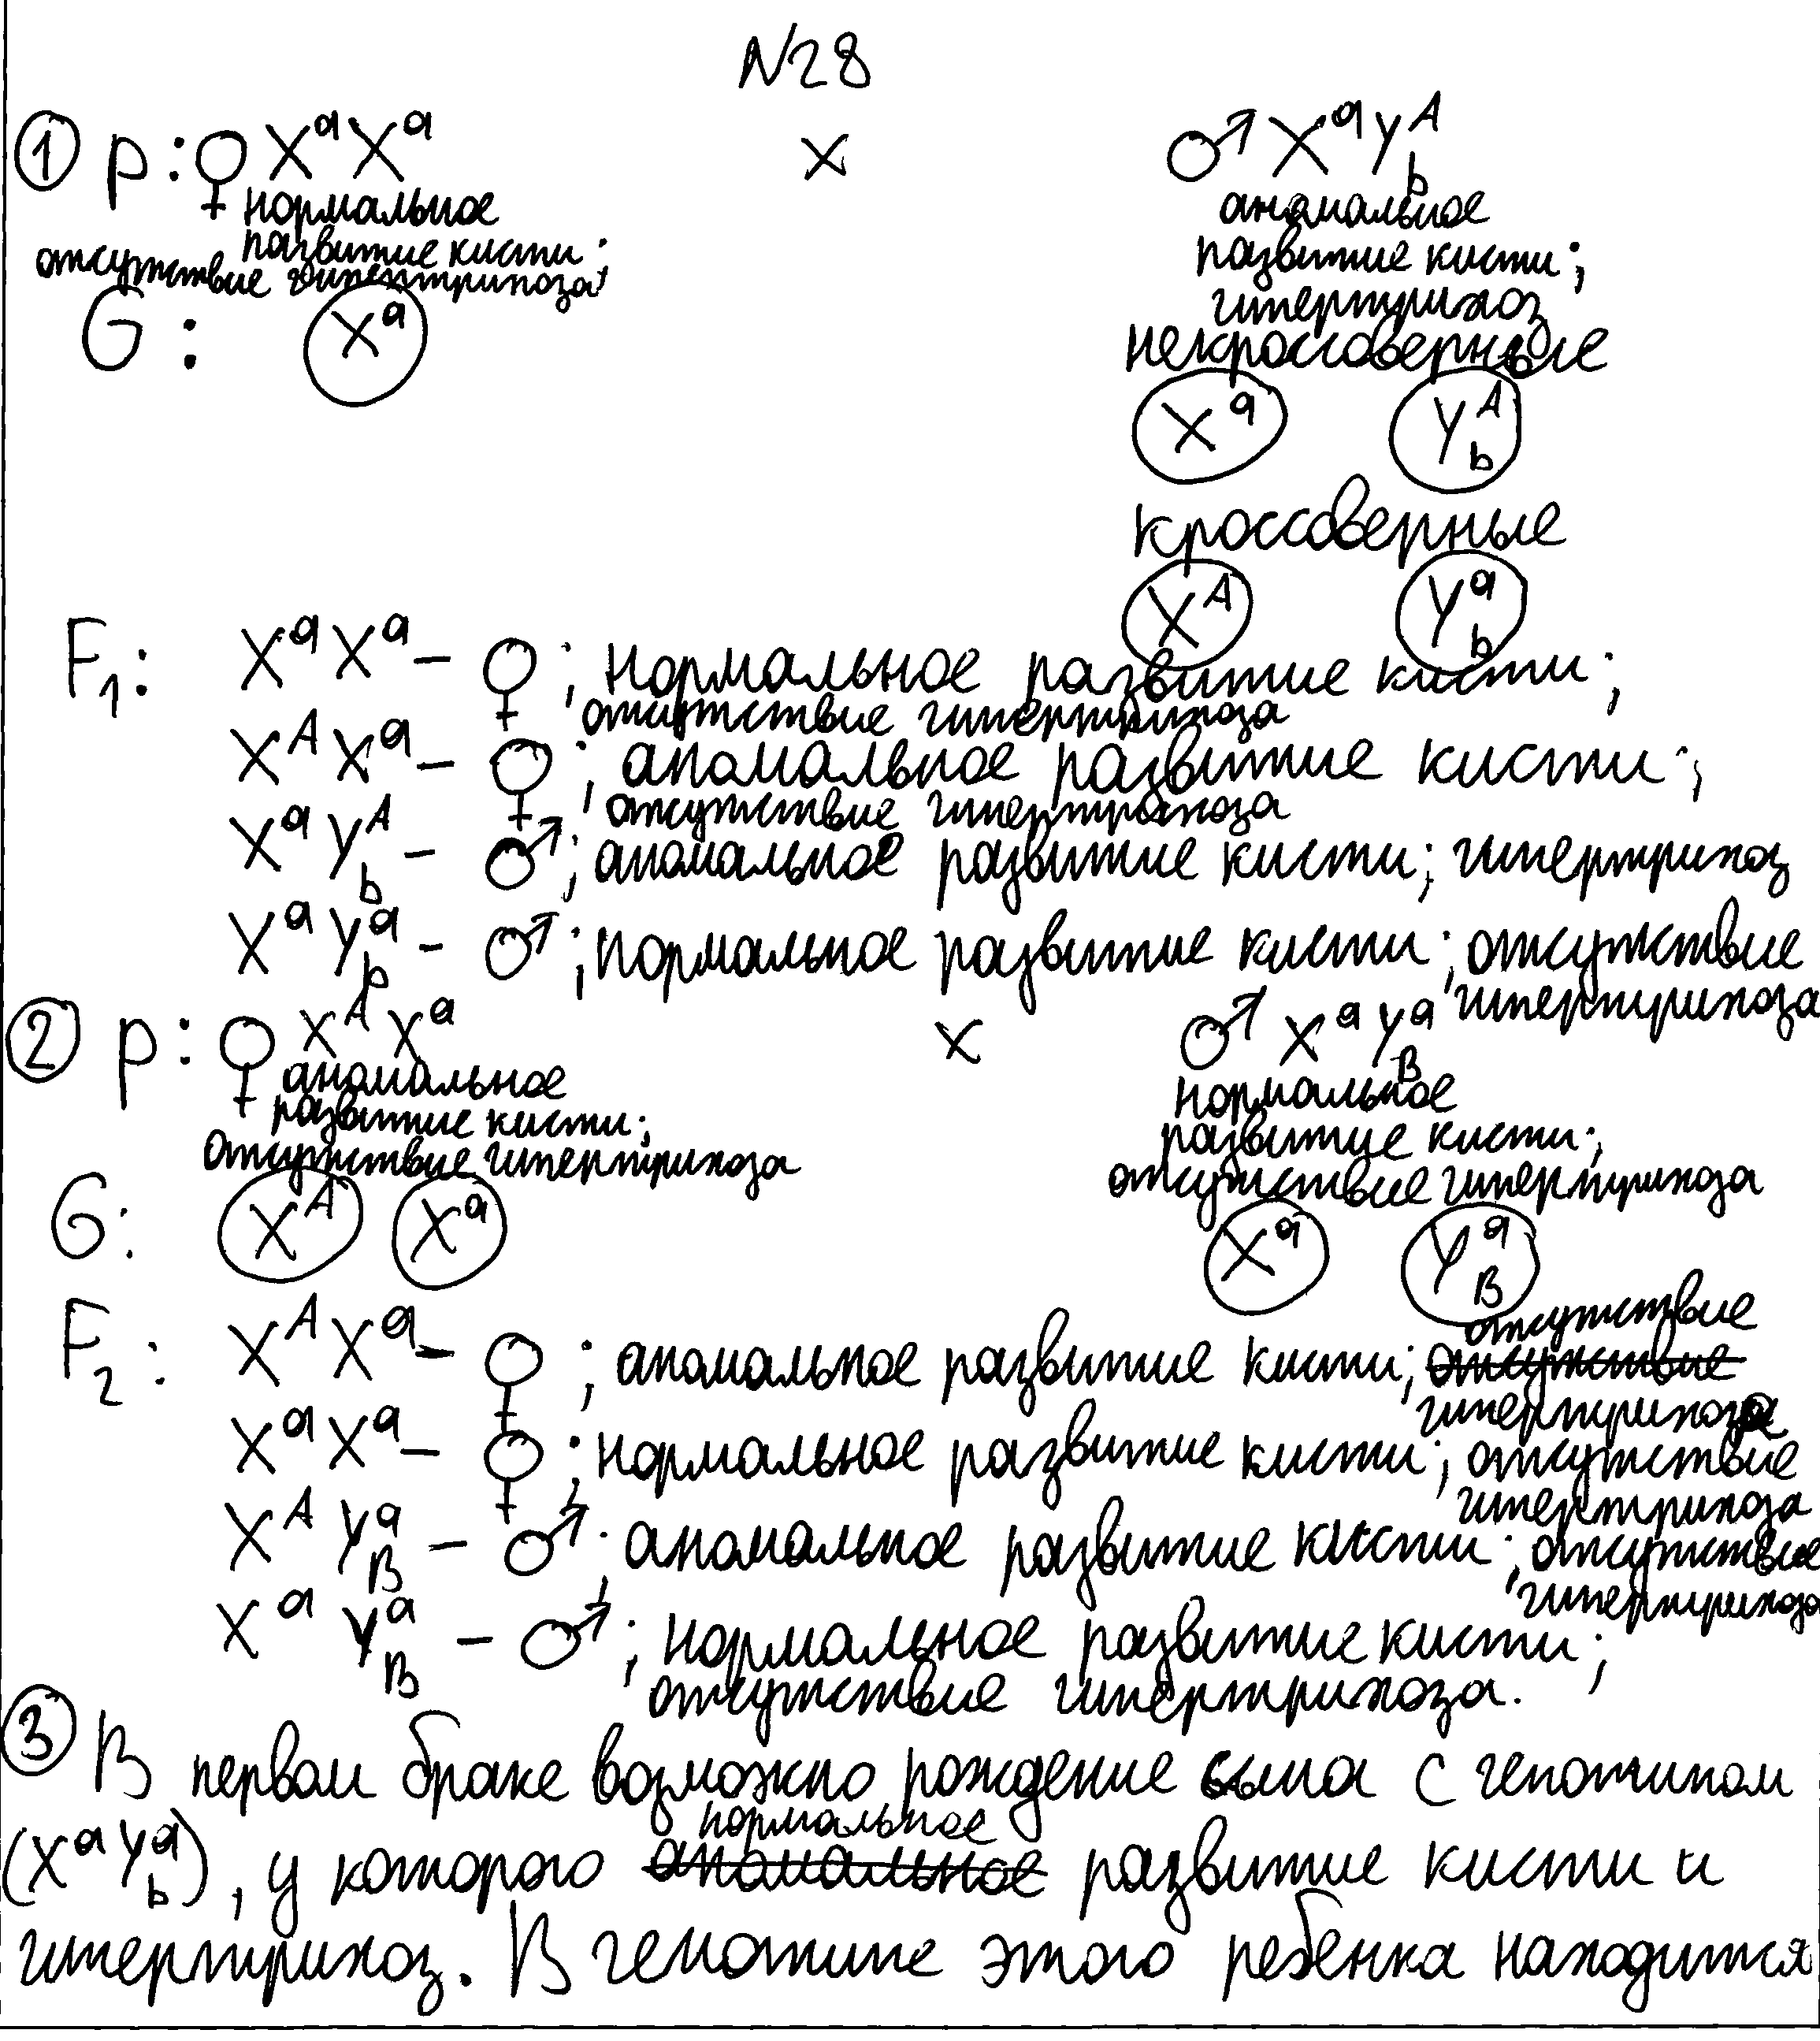 N28
① P: ♀ XᵃXᵃ × ♂ XᵃYᴬb
нормальное развитие кисти; отсутствие гипертрихоза
аномальное развитие кисти; гипертрихоз
G: Xᵃ
некроссоверные
Xᵃ Yᴬb
кроссоверные
Xᴬ Yᵃb
F₁: XᵃXᵃ – ♀; нормальное развитие кисти;
отсутствие гипертрихоза
XᴬXᵃ – ♀; аномальное развитие кисти;
отсутствие гипертрихоза
XᵃYᴬb – ♂; аномальное развитие кисти; гипертрихоз
XᵃYᵃb – ♂; нормальное развитие кисти; отсутствие
гипертрихоза
② P: ♀ XᴬXᵃ × ♂ XᵃYᵃB
аномальное развитие кисти; отсутствие гипертрихоза
нормальное развитие кисти; отсутствие гипертрихоза
G: Xᴬ Xᵃ Xᵃ YᵃB
F₂: XᴬXᵃ – ♀; аномальное развитие кисти; отсутствие
гипертрихоза
XᵃXᵃ – ♀; нормальное развитие кисти; отсутствие
гипертрихоза
XᴬYᵃB – ♂; аномальное развитие кисти; отсутствие
гипертрихоза
XᵃYᵃB – ♂; нормальное развитие кисти;
отсутствие гипертрихоза.
③ В первом браке возможно рождение сына с генотипом
(XᵃYᵃb), у которого нормальное развитие кисти и
гипертрихоз. В генотипе этого ребенка находится